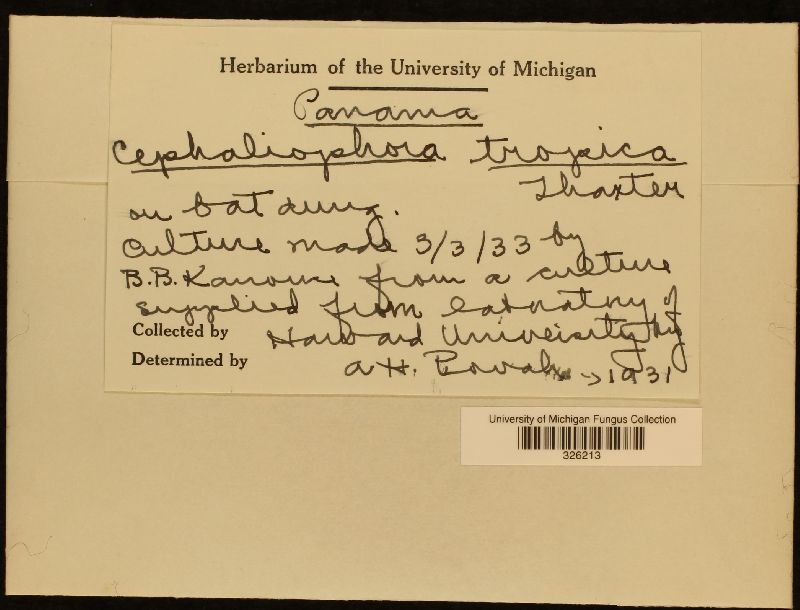 Herbarium of the University of Michigan
Panama
Cephaliophora tropica
Thaxter
on bat dung.
Culture made 3/3/33 by
B.B. Kanouse from a culture
supplied from laboratory of
Collected by Harvard University by
Determined by A.H. Povah → 1931
University of Michigan Fungus Collection
326213